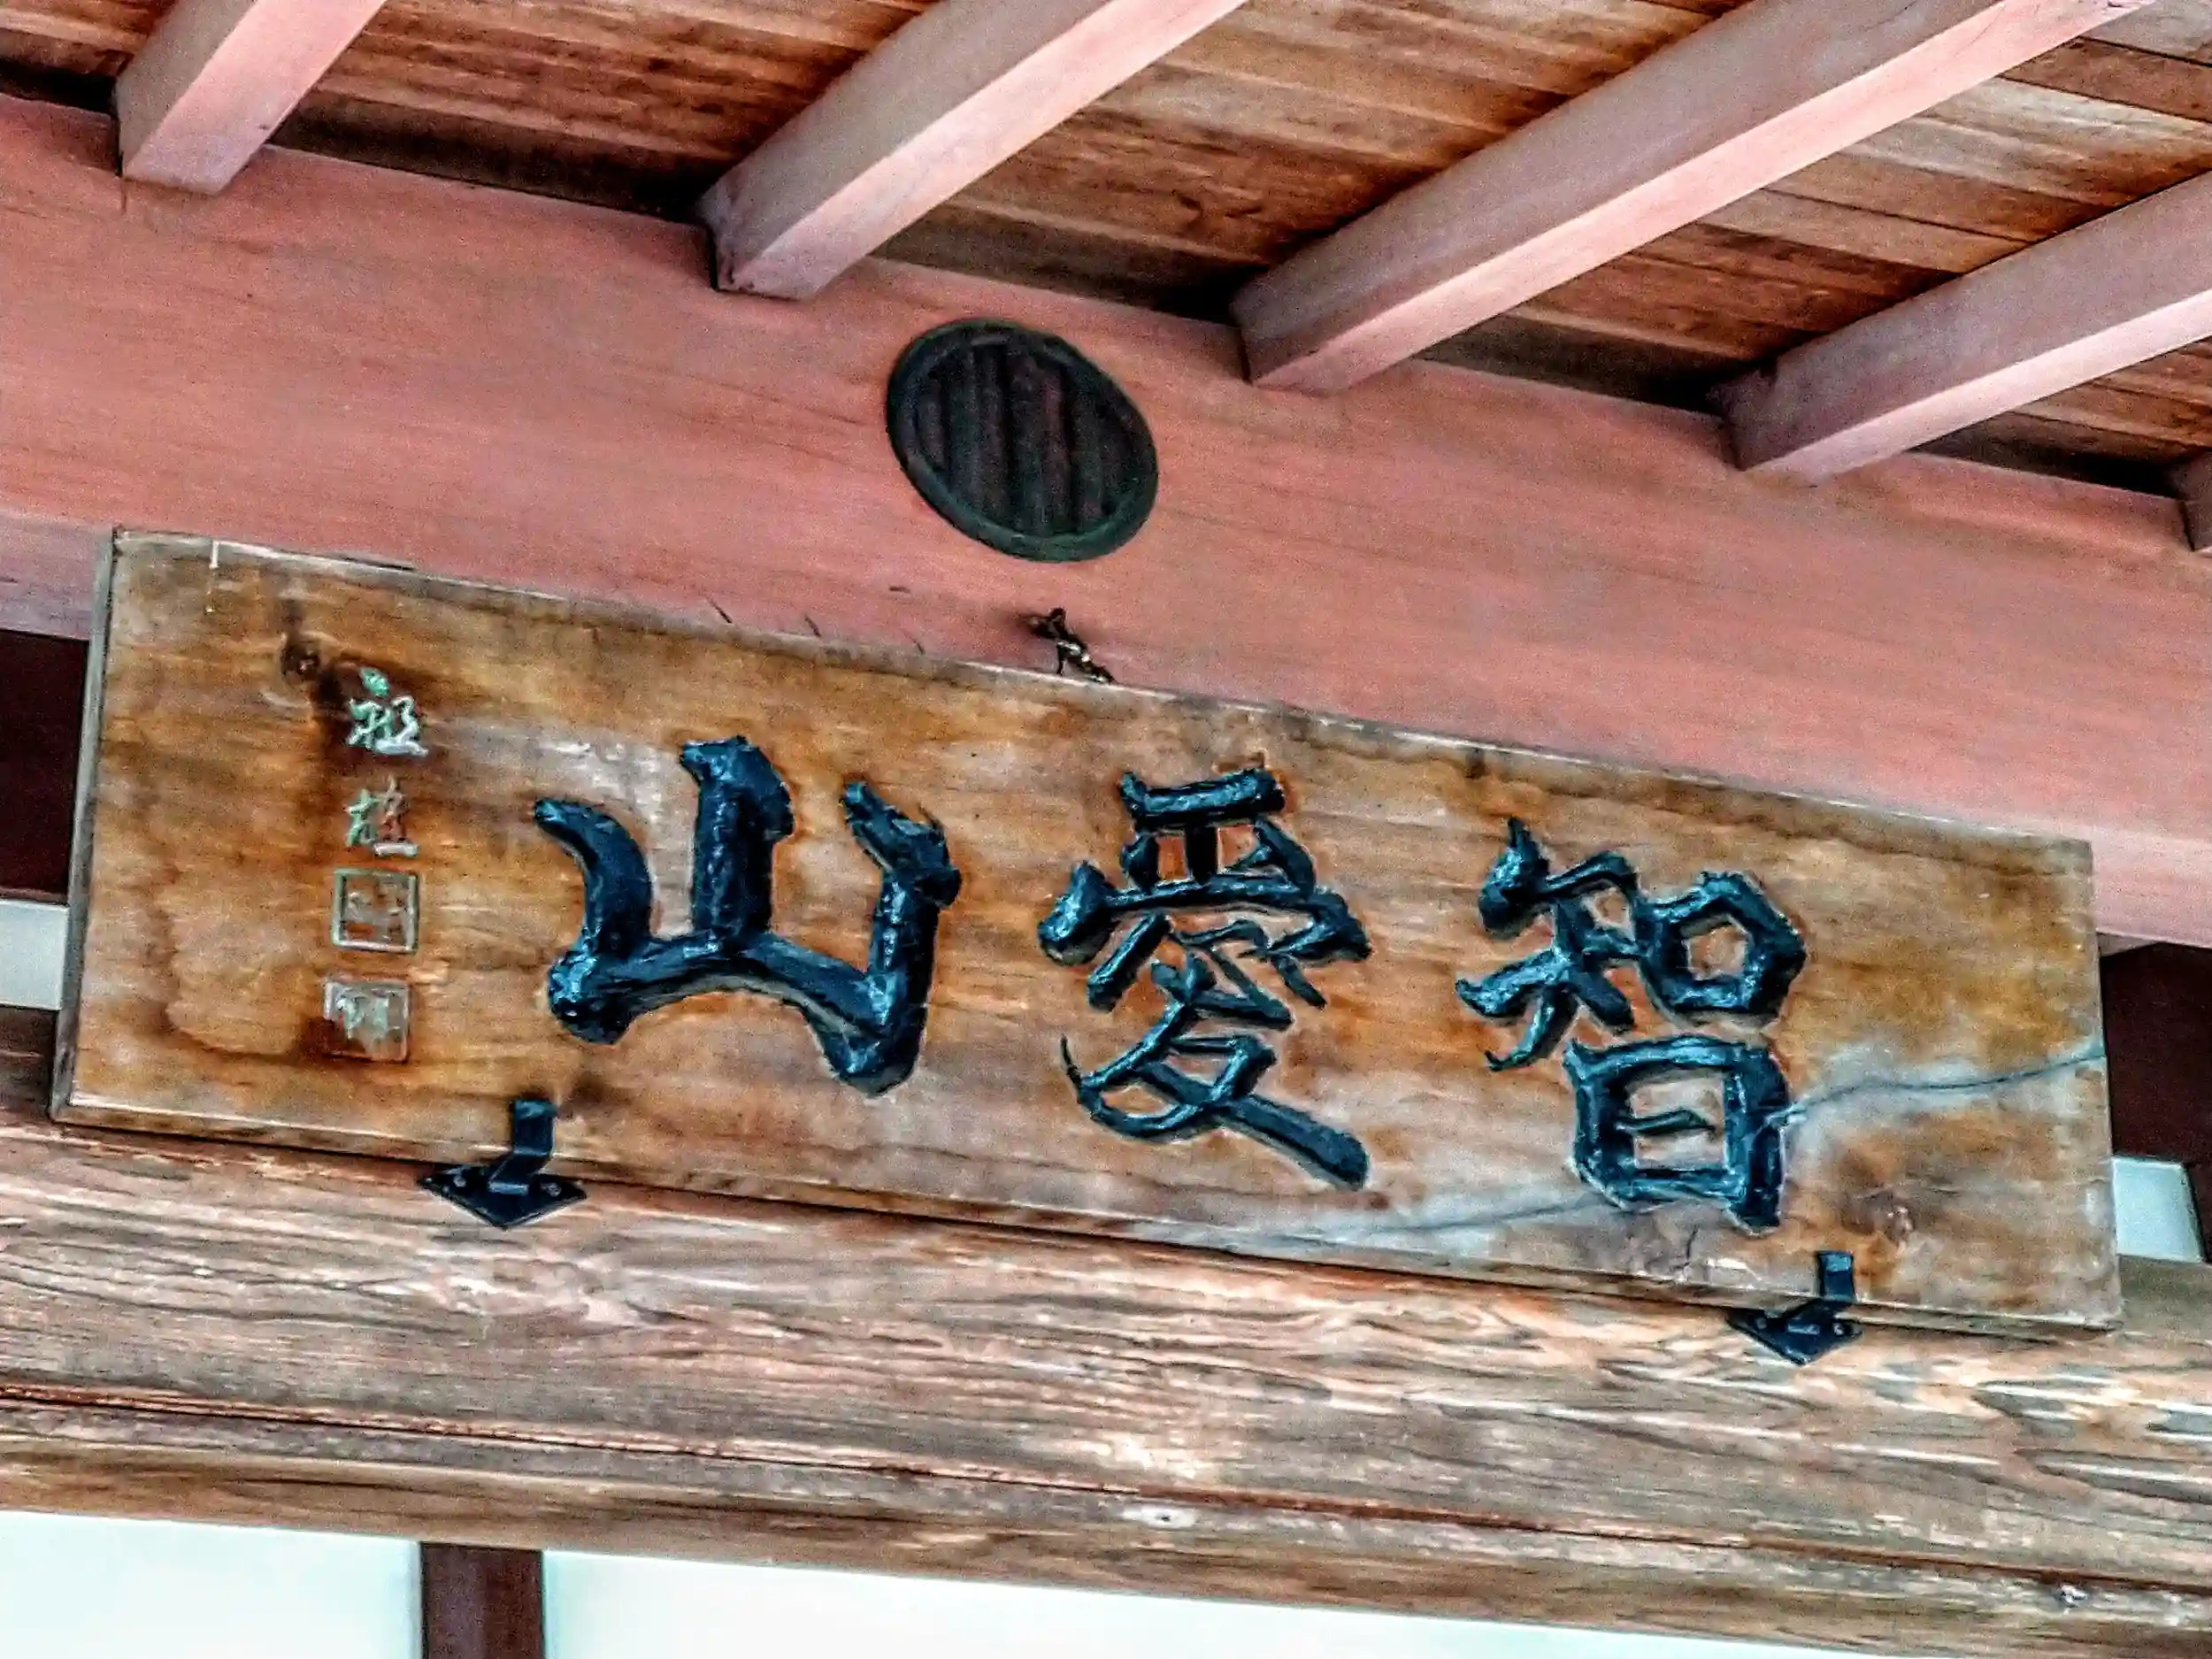 智愛山